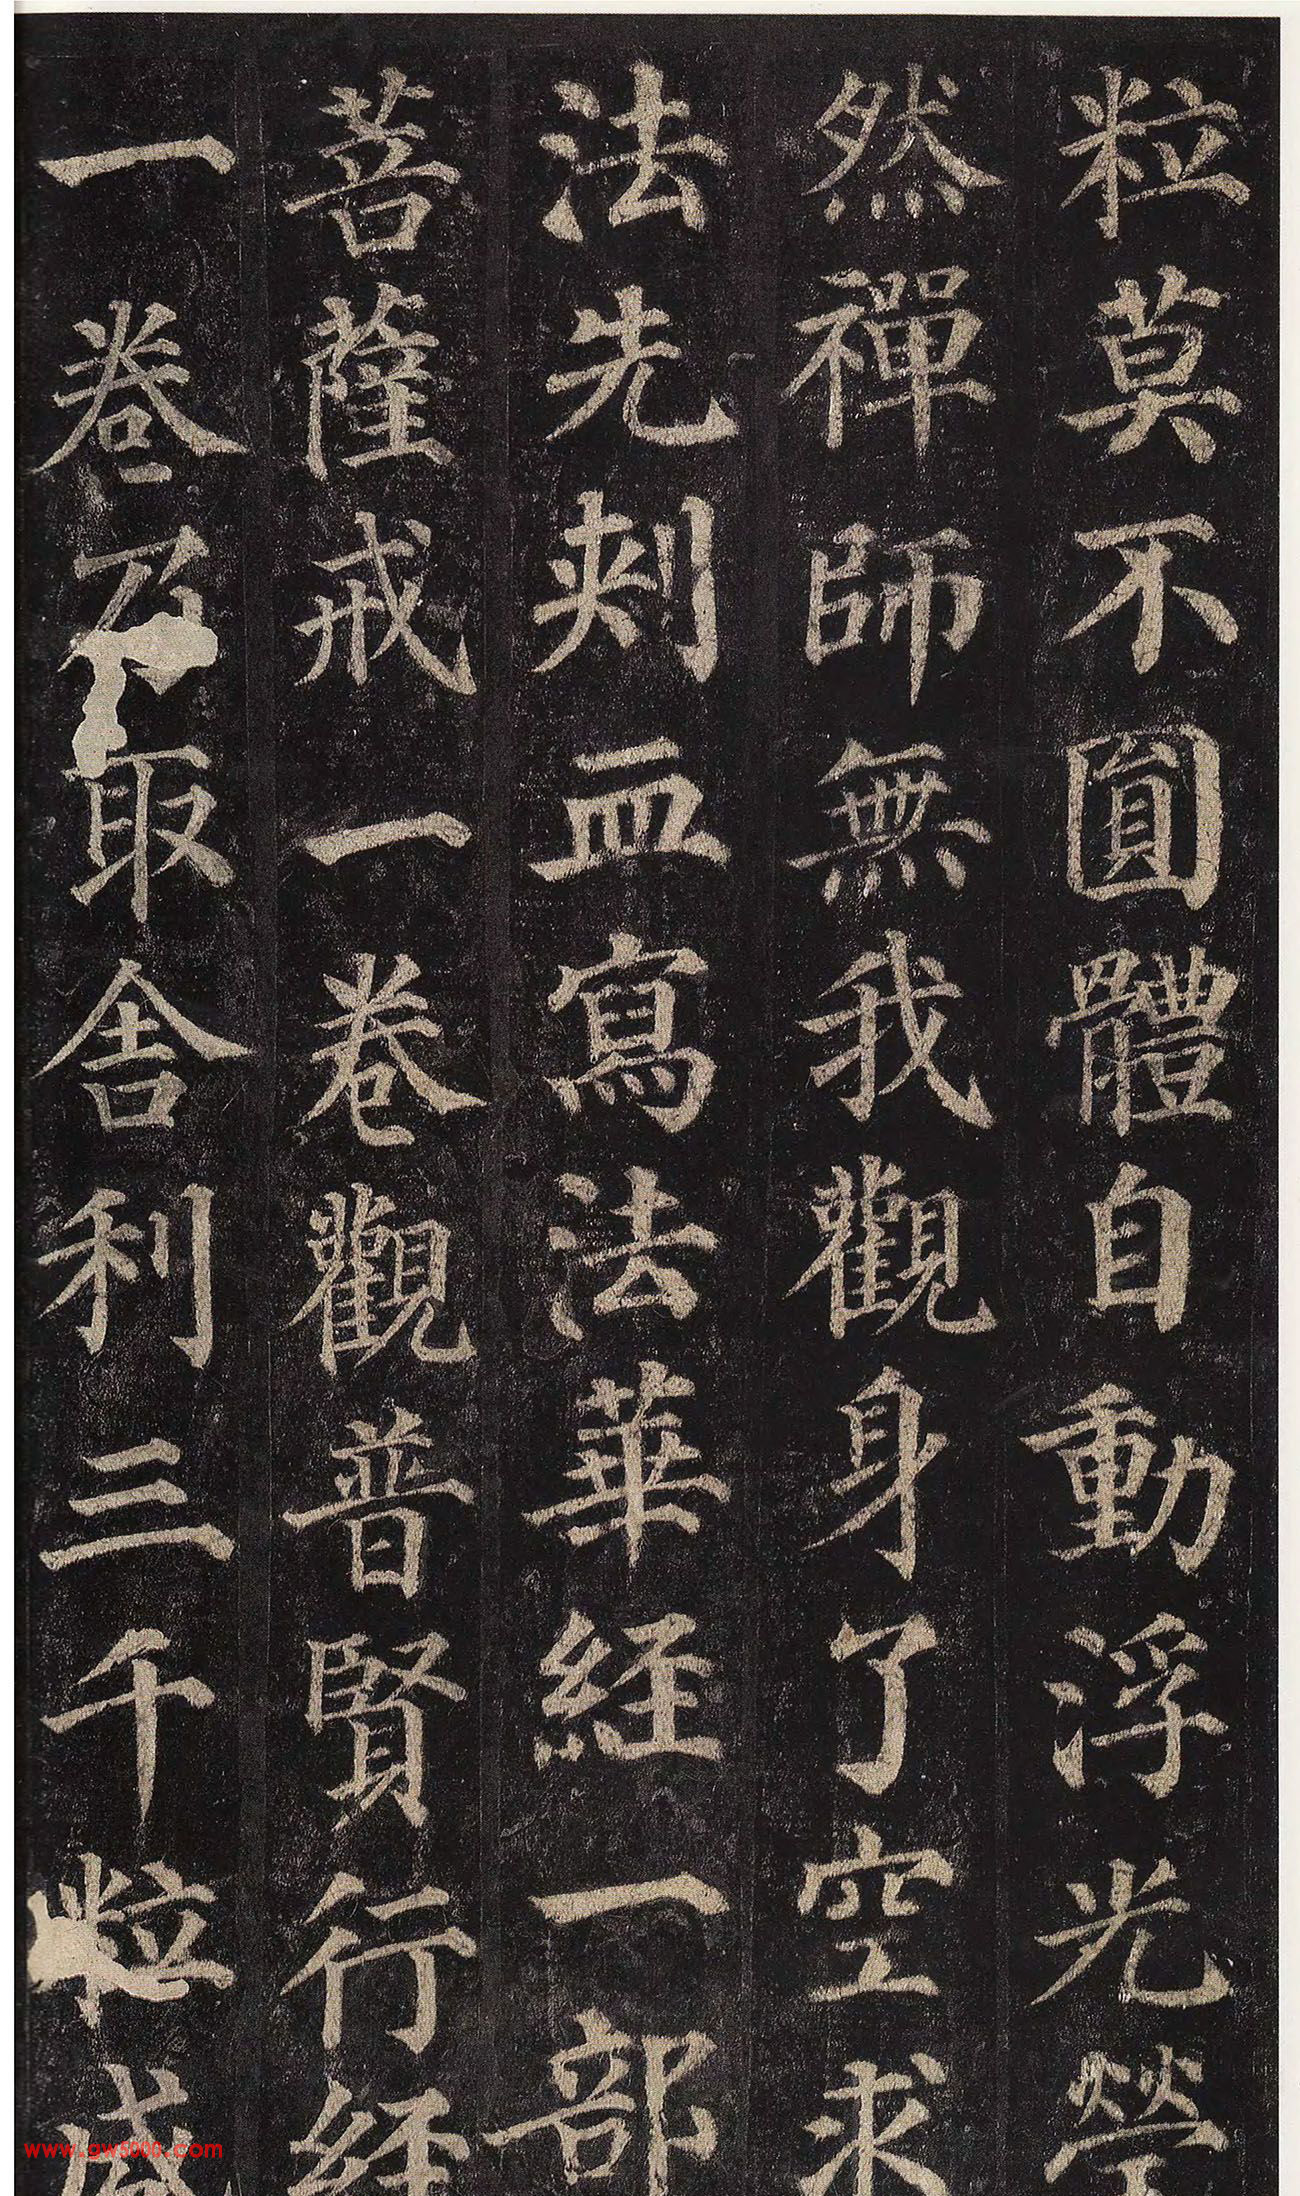 粒莫不圓體自動浮光瑩
然禪師無我觀身了空求
法先刾血寫法華経一部
菩薩戒一巻觀普賢行経
一巻乃取舍利三千粒盛
www.gw5000.com